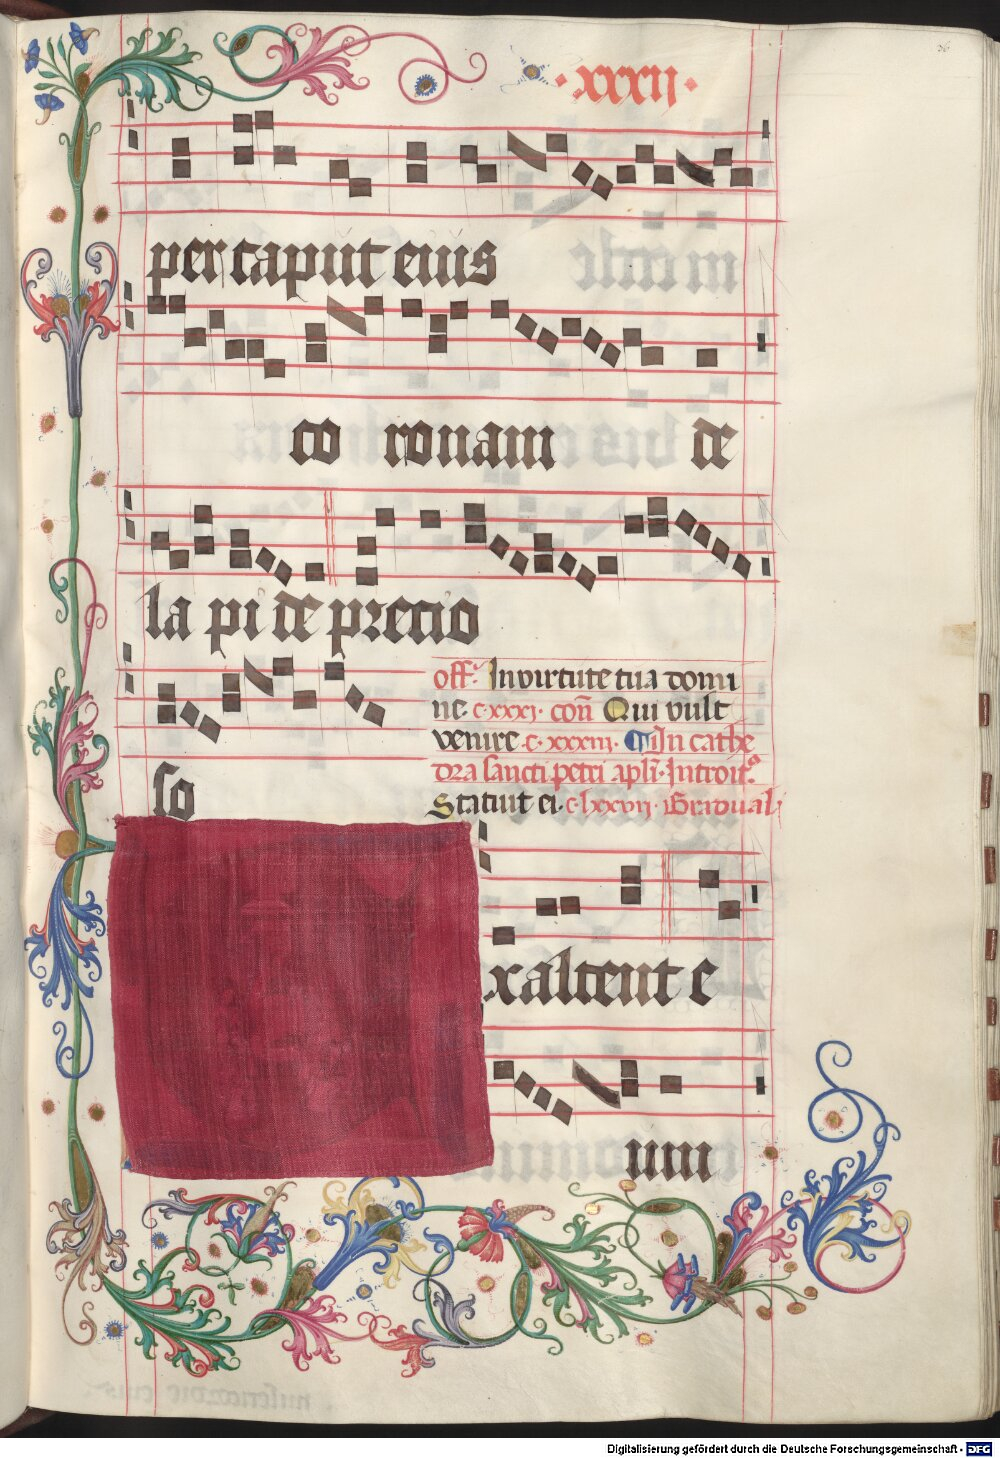 ·xxxij·
36
per caput eius
co ronam de
la pi de precio
so
off. In virtute tua domi
ne. c. xxxj. coñ Qui vult
venire. c. xxxiii. ¶ In cathe
dra sancti petri apli. Introitꝰ
Statuit ei. c. lxxvij. Gradual
xaltent e
um
Digitalisierung gefördert durch die Deutsche Forschungsgemeinschaft - DFG